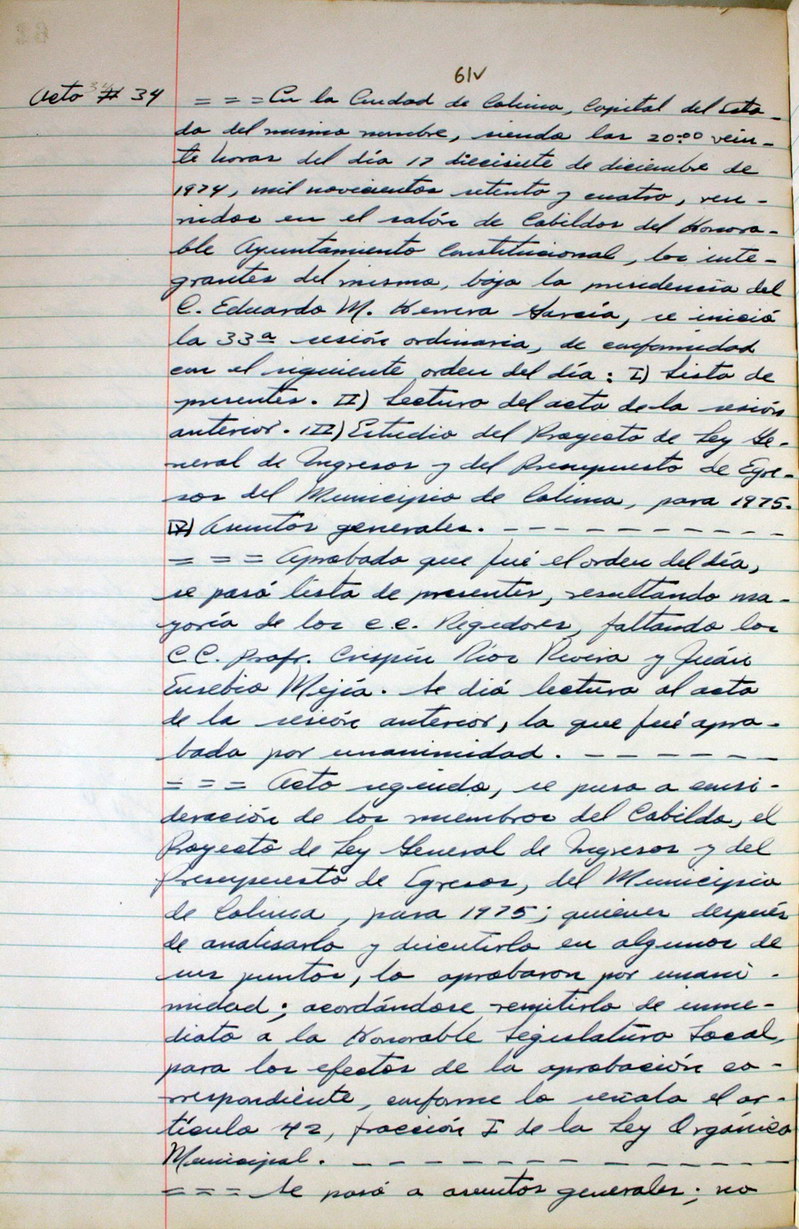 61v
Acta # 34 = = = En la Ciudad de Colima, Capital del Esta-
do del mismo nombre, siendo las 20:00 vein-
te horas del día 17 diecisiete de diciembre de
1974, mil novecientos setenta y cuatro, reu-
nidos en el salón de Cabildos del Honora-
ble Ayuntamiento Constitucional, los inte-
grantes del mismo, bajo la presidencia del
C. Eduardo M. Herrera García, se inició
la 33a sesión ordinaria, de conformidad
con el siguiente orden del día: I) Lista de
presentes. II) Lectura del acta de la sesión
anterior. III) Estudio del Proyecto de Ley Ge-
neral de Ingresos y del Presupuesto de Egre-
sos del Municipio de Colima, para 1975.
IV) Asuntos generales. - - - - - - - - - -
= = = Aprobado que fué el orden del día,
se pasó lista de presentes, resultando ma-
yoría de los C.C. Regidores, faltando los
C.C. Profr. Crispín Ríos Rivera y Juán
Eusebio Mejía. Se dió lectura al acta
de la sesión anterior, la que fué apro-
bada por unanimidad. - - - - - - -
= = = Acto seguido, se puso a consi-
deración de los miembros del Cabildo, el
Proyecto de Ley General de Ingresos y del
Presupuesto de Egresos, del Municipio
de Colima, para 1975; quienes después
de analisarlo y discutirlo en algunos de
sus puntos, lo aprobaron por unani-
midad; acordándose remitirlo de inme-
diato a la Honorable Legislatura Local,
para los efectos de la aprobación co-
rrespondiente, conforme lo señala el ar-
tículo 42, fracción I de la Ley Orgánica
Municipal. - - - - - - - - - - - - - -
= = = Se pasó a asuntos generales; no